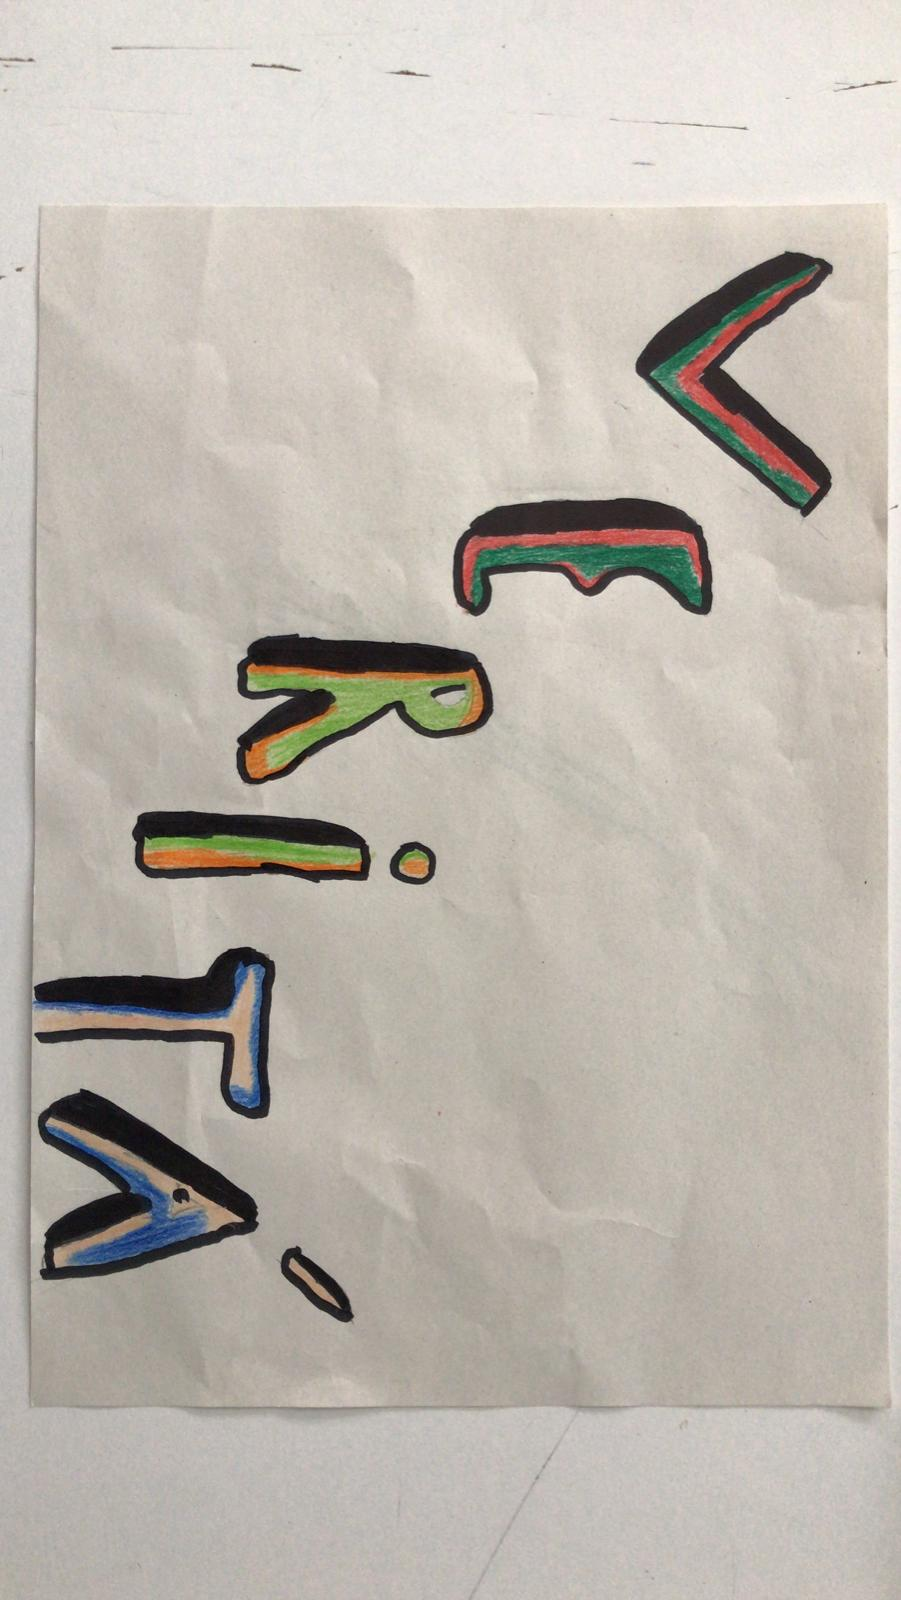 VERiTÁ